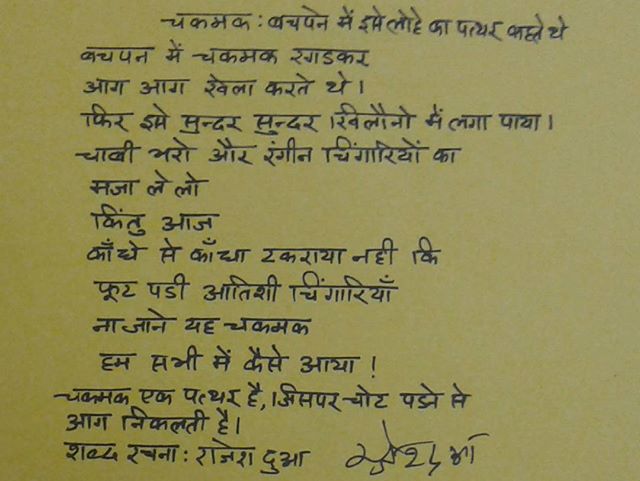 चकमक : बचपन में इसे लोहे का पत्थर कहते थे
बचपन में चकमक रगडकर
आग आग खेला करते थे।
फिर इसे सुन्दर सुन्दर खिलौनो में लगा पाया।
चाबी भरो और रंगीन चिंगारियों का
मजा ले लो
किंतु आज
काँधे से काँधा टकराया नही कि
फूट पडी आतिशी चिंगारियाँ
ना जाने यह चकमक
हम सभी में कैसे आया !
चकमक एक पत्थर है, जिसपर चोट पडने से
आग निकलती है।
शब्द रचना : राजेश दुआ